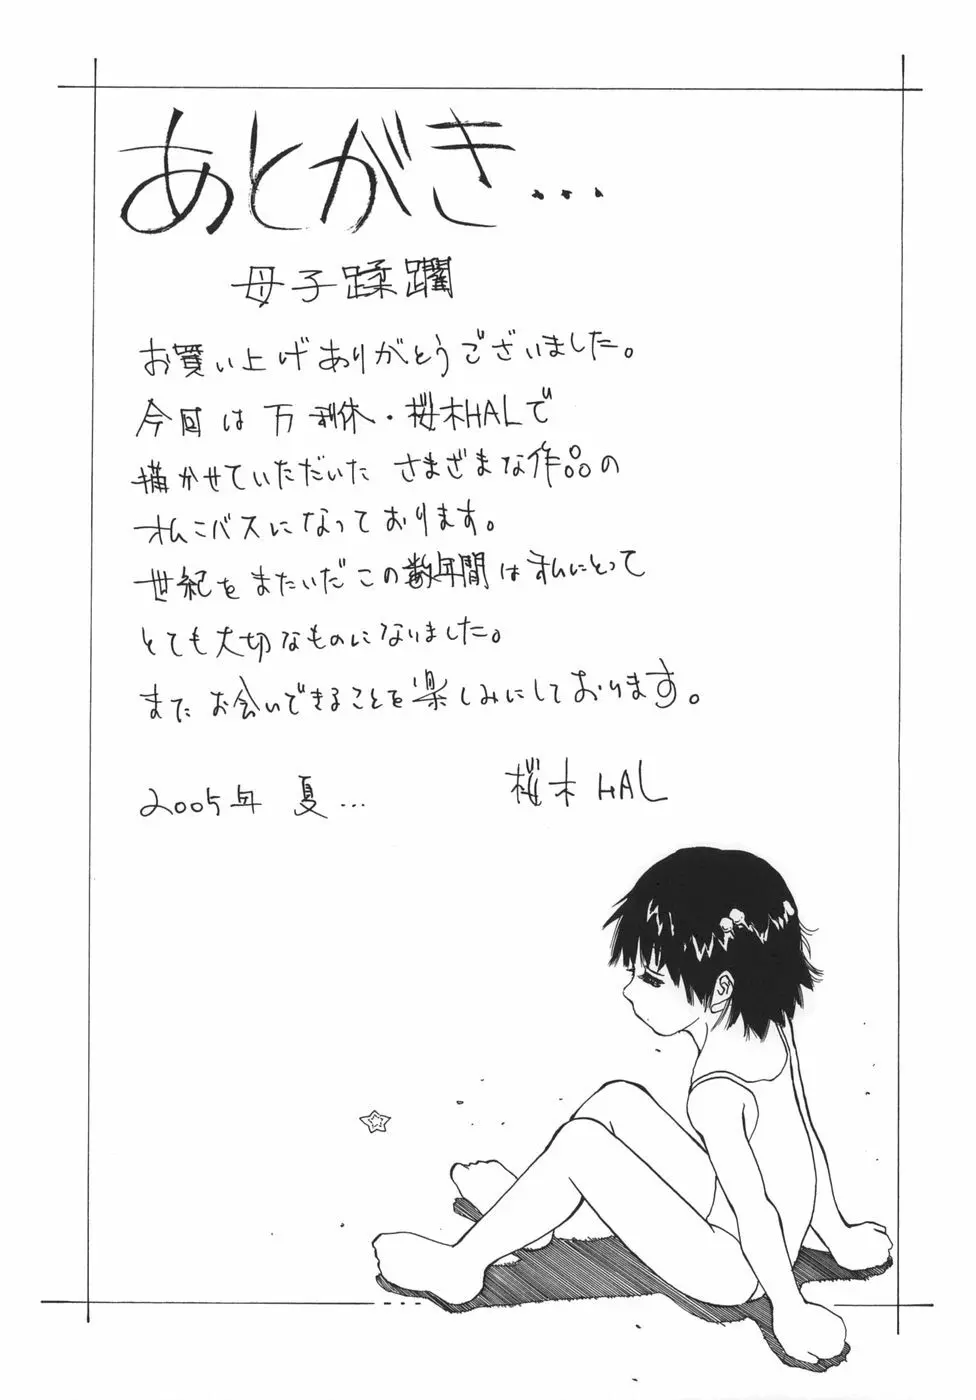 あとがき...
母子蹂躙
お買い上げありがとうございました。
今回は 万利休・桜木HALで
描かせていただいた さまざまな作品の
オムニバスになっております。
世紀をまたいだこの数年間は私にとって
とても大切なものになりました。
また お会いできることを楽しみにしております。
2005年 夏... 桜木HAL